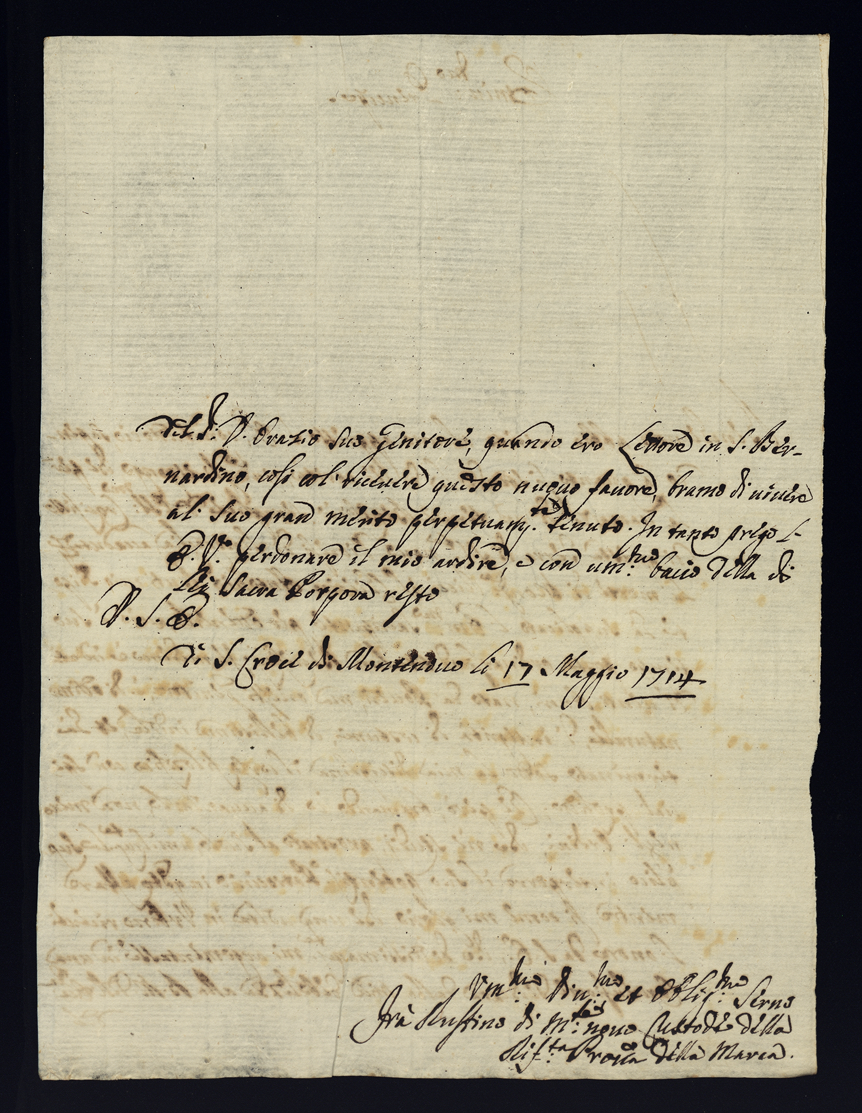 del S.r D. Orazio suo Genitore, quando ero Lettore in S. Ber-
nardino, così col ricevere questo nuovo favore, bramo di vivere
al suo gran merito perpetuam.te tenuto. In tanto prego
perdonare il mio ardire, e con um.mo bacio della di
Lei Sacra Porpora resto
D. S. E.
Di S. Croce di Montenovo li 17 Maggio 1714
Um.mo Div.mo et Oblig.mo Servo
Frà Ruffino di M.te novo Custode della
Rif.ta Prov.a della Marca.